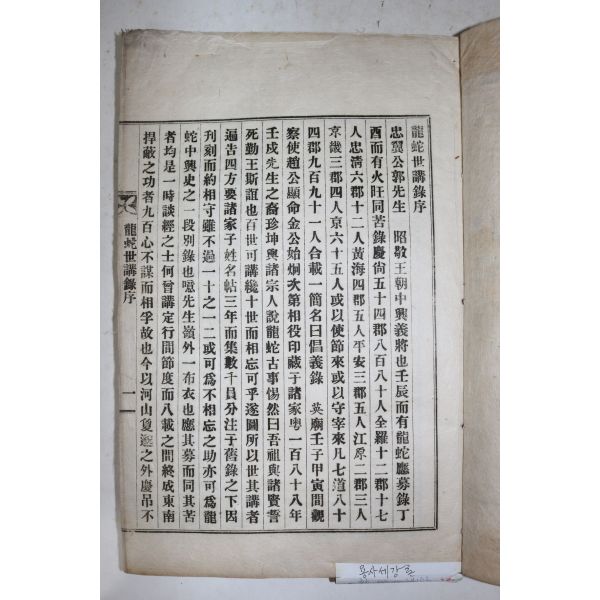 龍蛇世講錄序
忠翼公郭先生 昭敬王朝中興義將也壬辰而有龍蛇應募錄丁
酉而有火旺同苦錄慶尙五十四郡八百八十人全羅十二郡十七
人忠淸六郡十二人黃海四郡五人平安三郡五人江原二郡三人
京畿三郡四人京六十五人或以使節來或以守宰來凡七道八十
四郡九百九十一人合載一簡名曰倡義錄 英廟壬子甲寅間觀
察使趙公顯命金公始炯次第相役印藏于諸家粤一百八十八年
壬戌先生之裔珍坤與諸宗人說龍蛇古事惕然曰吾祖與諸賢誓
死勤王斯誼也百世可講纔十世而相忘可乎遂圖所以世其講者
遍告四方要諸家子姓名帖三年而集數千員分注于舊錄之下因
刊刻而約相守雖不過一十之一二或可爲不相忘之助亦可爲龍
蛇中興史之一段別錄也噫先生嶺外一布衣也應其募而同其苦
者均是一時談經之士何曾講定行間節度而八載之間終成東南
捍蔽之功者九百心不謀而相孚故也今以河山夐邈之外慶吊不
龍蛇世講錄序 一
용사세강록